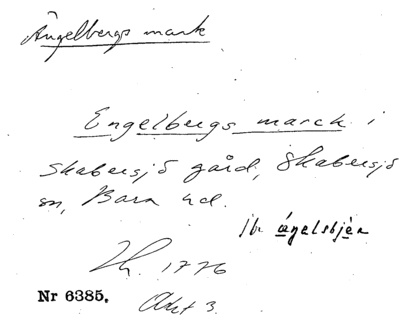 Ängelbergs mark
Engelbergs marck i
Skabersjö gård, Skabersjö
sn, Bara hd.
jfr ängelsbjär
Lh. 1776
Nr 6385. Akt 3.